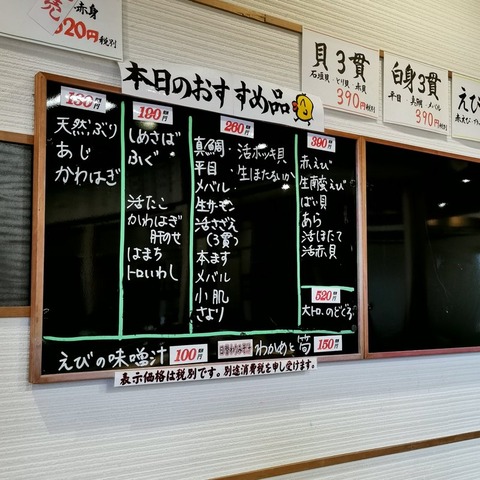 赤身
520円税別
本日のおすすめ品
貝3貫
石垣貝・とり貝・赤貝
390円税別
白身3貫
平目 真鯛 メバル
390円税別
えび
130円
天然ぶり
あじ
かわはぎ
190円
しめさば
ふぐ
活たこ
かわはぎ
肝のせ
はまち
トロいわし
260円
真鯛・活ホッキ貝
平目・生ほたるいか
メバル
生サーモン
活さざえ
(3貫)
本ます
メバル
小肌
さより
390円
赤えび
生南蛮えび
ばい貝
あら
活ほたて
活赤貝
520円
大トロ・のどぐろ
えびの味噌汁 100円
わかめと筍 150円
表示価格は税別です。別途消費税を申し受けます。